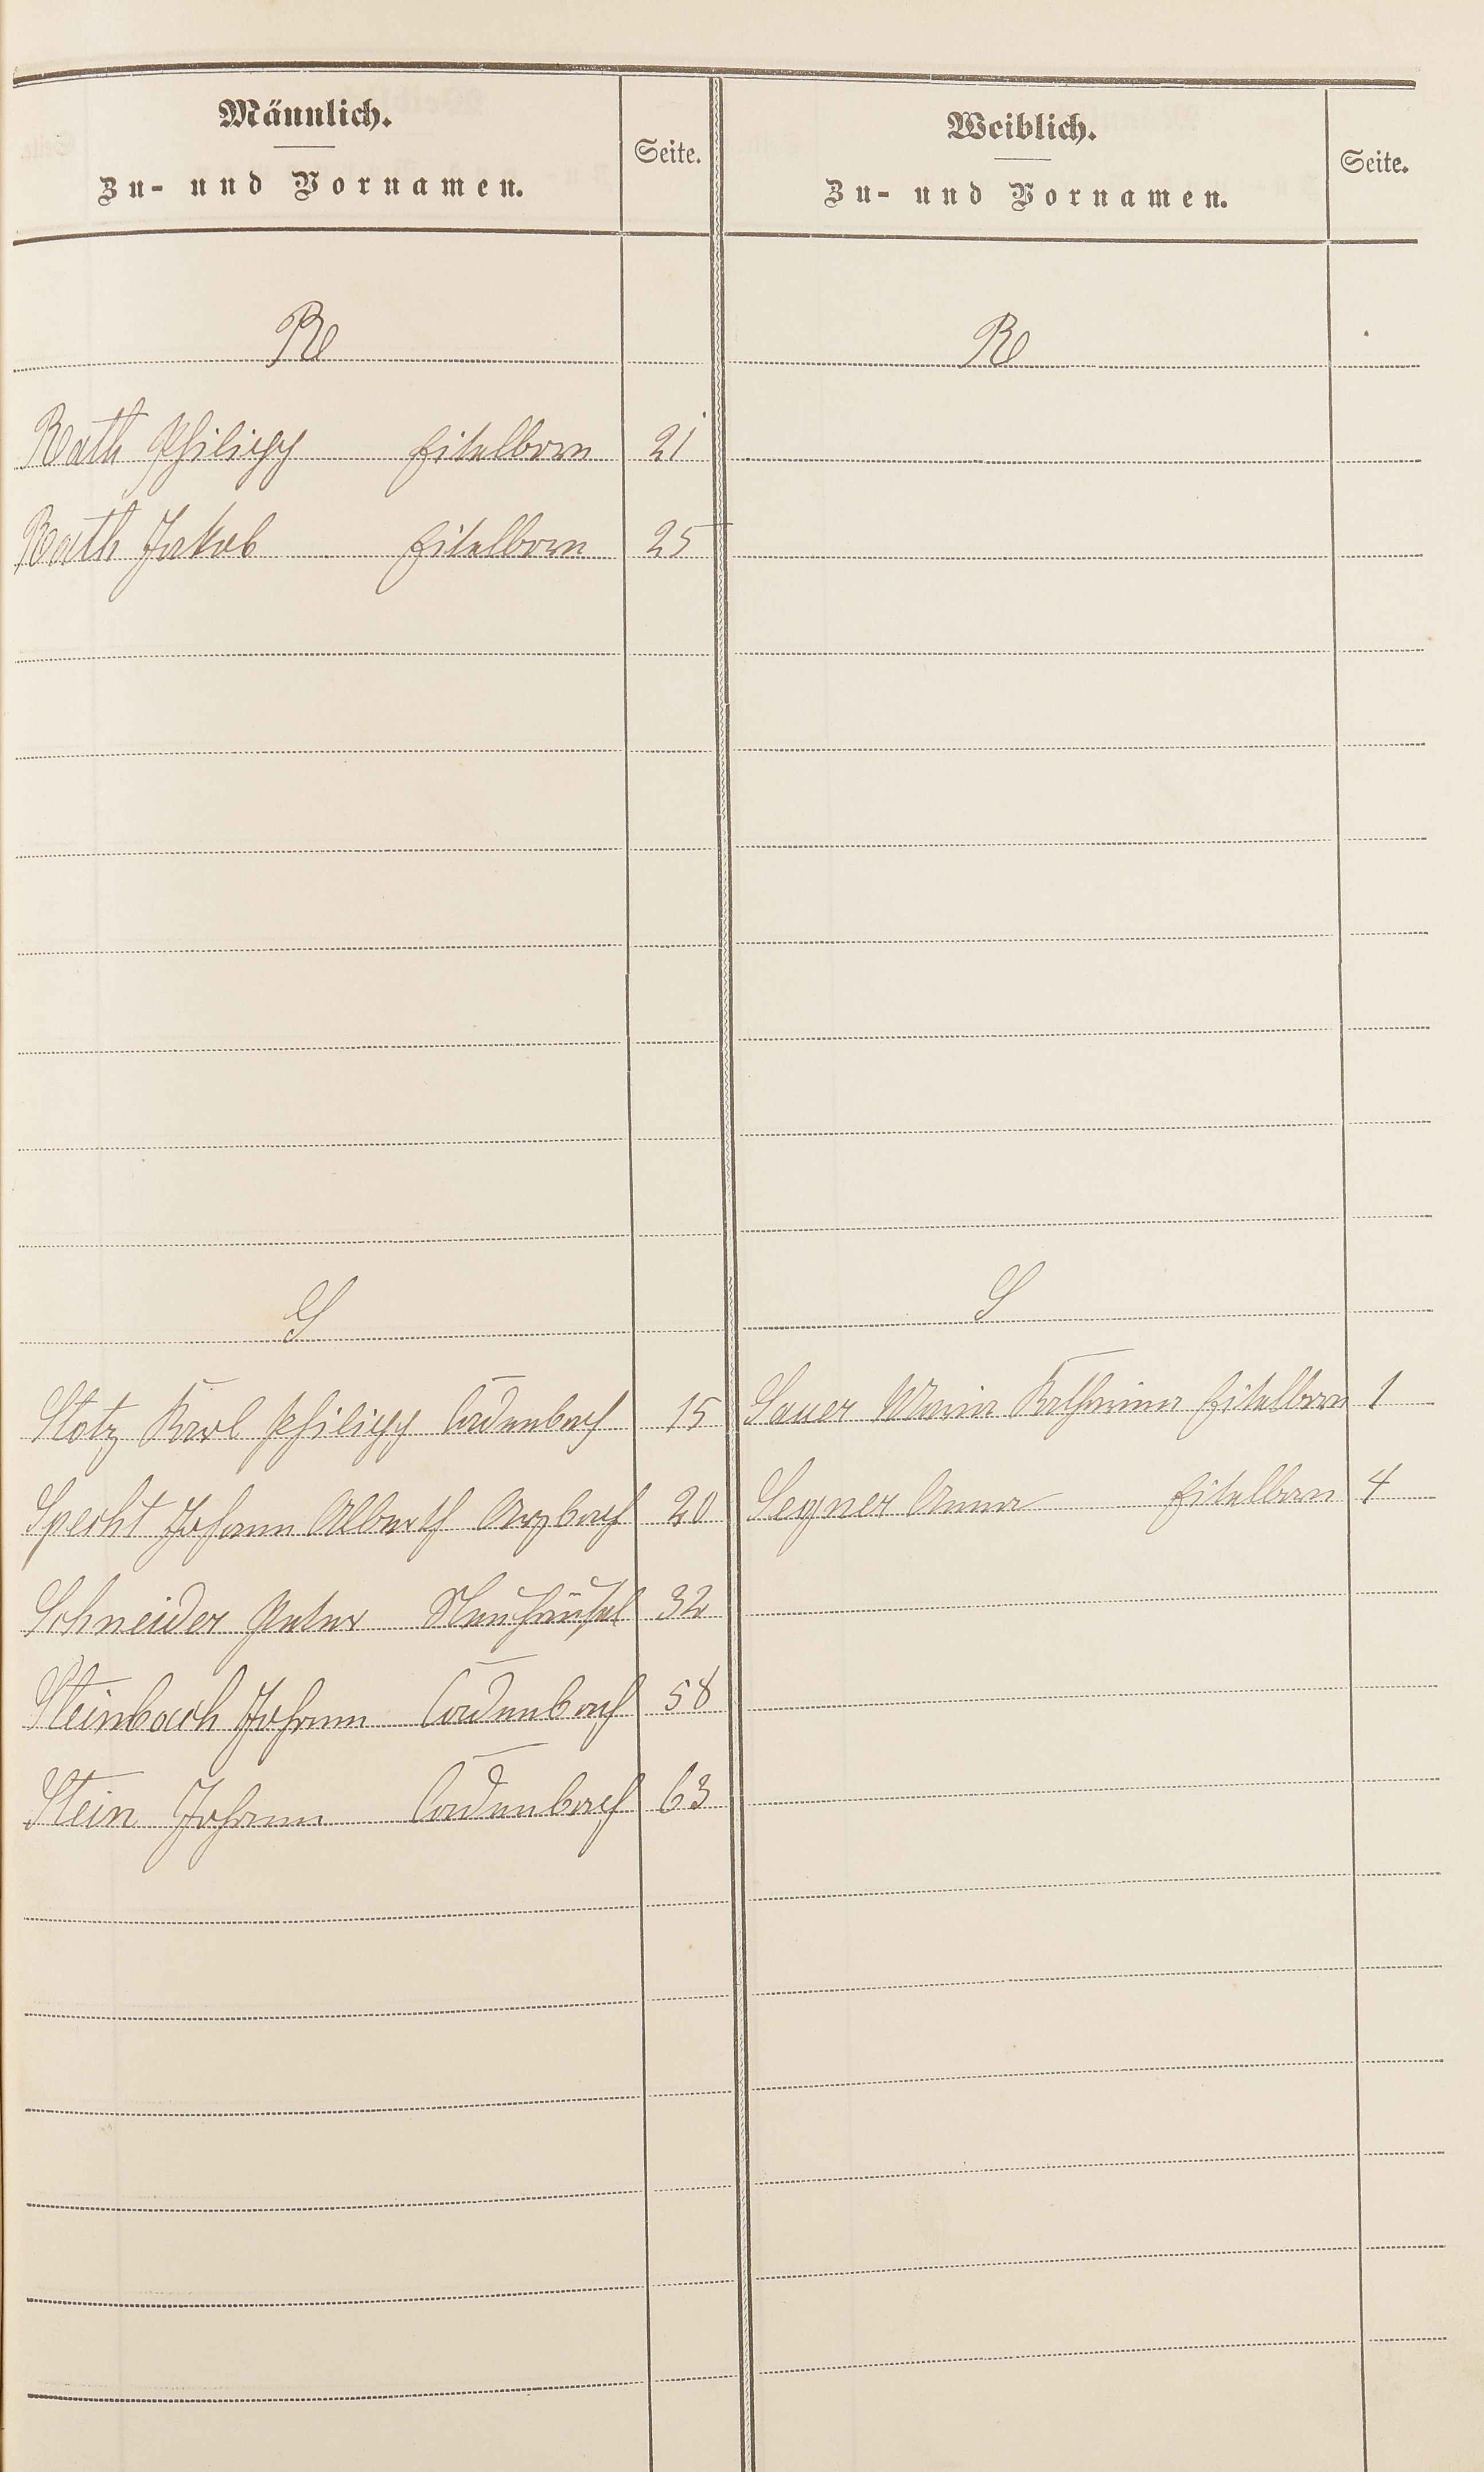 Männlich.
Zu- und Vornamen.
Seite.
Weiblich.
Zu- und Vornamen.
Seite.
R
R
Rath Philipp Eitelborn 21
Rath Jakob Eitelborn 25
S
S
Stotz Karl Philipp Cadenbach 15
Sauer Maria Katharina Eitelborn 1
Specht Johann Albrecht Arzbach 20
Segner Anna Eitelborn 4
Schneider Peter Neuhäusel 32
Steinbach Johann Cadenbach 58
Stein Johann Cadenbach 63